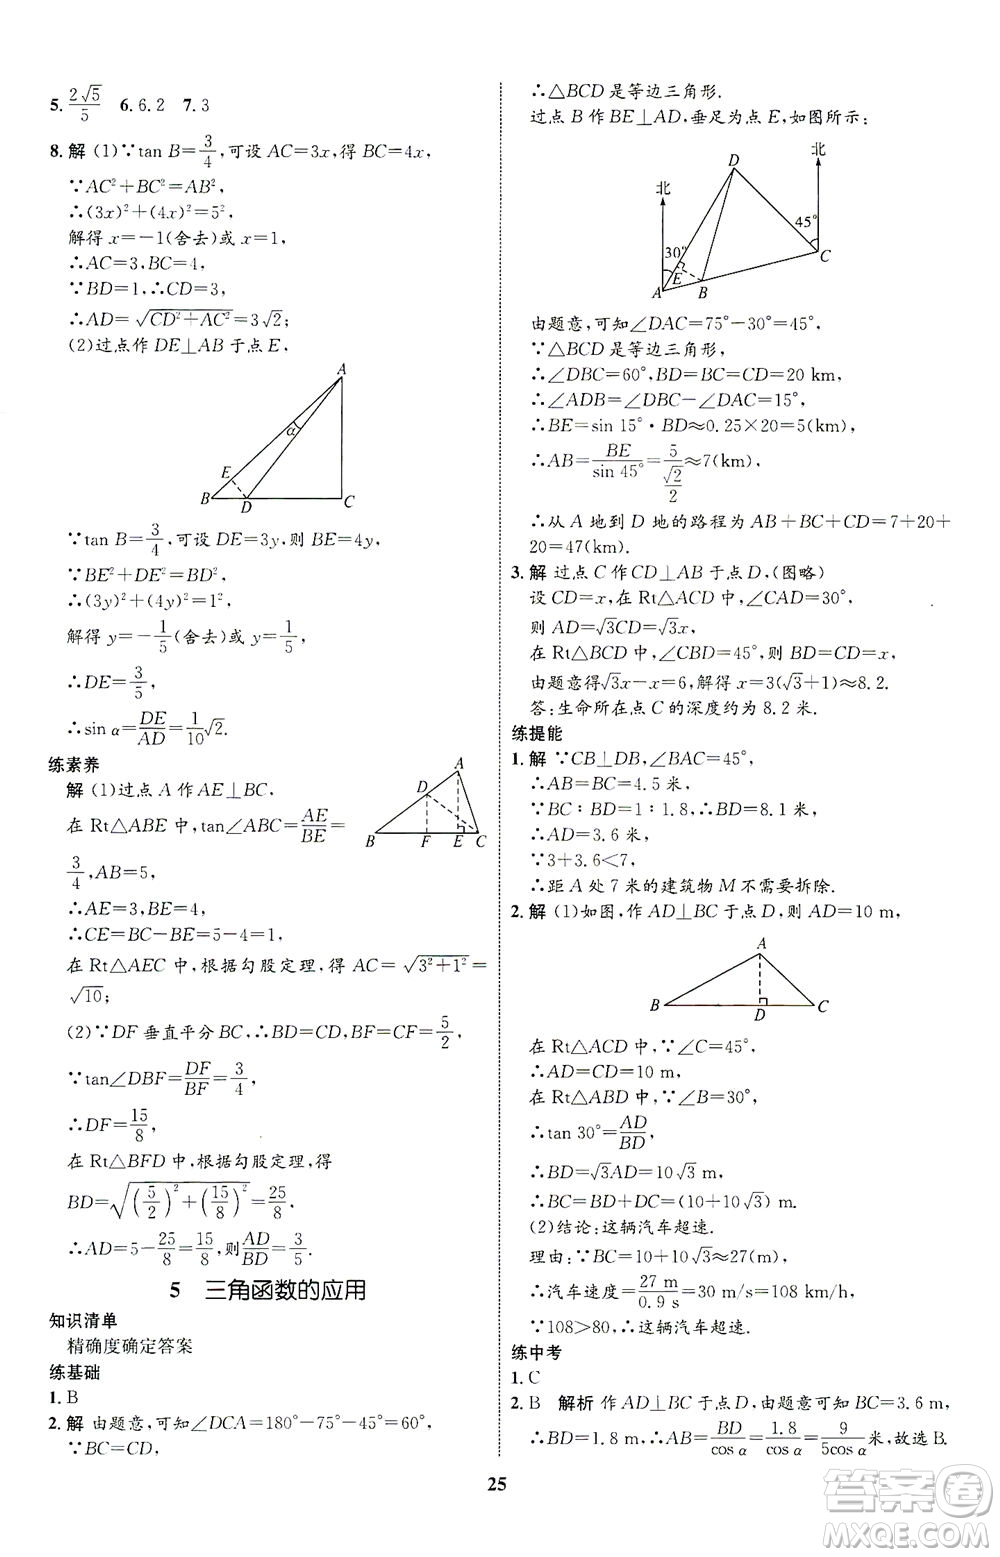 5. 2√5/5  6. 6.2  7. 3
8. 解 (1)∵tan B=3/4,可设 AC=3x,得 BC=4x,
∵AC²+BC²=AB²,
∴(3x)²+(4x)²=5²,
解得 x=-1(舍去)或 x=1,
∴AC=3,BC=4,
∵BD=1,∴CD=3,
∴AD=√(CD²+AC²)=3√2;
(2)过点作 DE⊥AB 于点 E,
A
α
E
B
D
C
∵tan B=3/4,可设 DE=3y,则 BE=4y,
∵BE²+DE²=BD²,
∴(3y)²+(4y)²=1²,
解得 y=-1/5(舍去)或 y=1/5,
∴DE=3/5,
∴sin α=DE/AD=1/10√2.
练素养
解 (1)过点 A 作 AE⊥BC,
在 Rt△ABE 中,tan∠ABC=AE/BE=
3/4,AB=5,
A
D
B
F
E
C
∴AE=3,BE=4,
∴CE=BC-BE=5-4=1,
在 Rt△AEC 中,根据勾股定理,得 AC=√(3²+1²)=
√10;
(2)∵DF 垂直平分 BC,∴BD=CD,BF=CF=5/2,
∵tan∠DBF=DF/BF=3/4,
∴DF=15/8,
在 Rt△BFD 中,根据勾股定理,得
BD=√((5/2)²+(15/8)²)=25/8,
∴AD=5-25/8=15/8,则AD/BD=3/5.
5 三角函数的应用
知识清单
精确度确定答案
练基础
1. B
2. 解 由题意,可知∠DCA=180°-75°-45°=60°,
∵BC=CD,
∴△BCD 是等边三角形.
过点 B 作 BE⊥AD,垂足为点 E,如图所示:
北
D
北
45°
30°
E
C
A
B
由题意,可知∠DAC=75°-30°=45°,
∵△BCD 是等边三角形,
∴∠DBC=60°,BD=BC=CD=20 km,
∴∠ADB=∠DBC-∠DAC=15°,
∴BE=sin 15°·BD≈0.25×20=5(km),
∴AB=BE/sin 45°=5/(√2/2)≈7(km),
∴从 A 地到 D 地的路程为 AB+BC+CD=7+20+
20=47(km).
3. 解 过点 C 作 CD⊥AB 于点 D,(图略)
设 CD=x,在 Rt△ACD 中,∠CAD=30°,
则 AD=√3CD=√3x,
在 Rt△BCD 中,∠CBD=45°,则 BD=CD=x,
由题意得√3x-x=6,解得 x=3(√3+1)≈8.2.
答:生命所在点 C 的深度约为 8.2 米.
练提能
1. 解 ∵CB⊥DB,∠BAC=45°,
∴AB=BC=4.5 米,
∵BC∶BD=1∶1.8,∴BD=8.1 米,
∴AD=3.6 米,
∵3+3.6<7,
∴距 A 处 7 米的建筑物 M 不需要拆除.
2. 解 (1)如图,作 AD⊥BC 于点 D,则 AD=10 m,
A
B
D
C
在 Rt△ACD 中,∵∠C=45°,
∴AD=CD=10 m,
在 Rt△ABD 中,∵∠B=30°,
∴tan 30°=AD/BD,
∴BD=√3AD=10√3 m,
∴BC=BD+DC=(10+10√3) m.
(2)结论:这辆汽车超速.
理由:∵BC=10+10√3≈27(m),
∴汽车速度=27 m/0.9 s=30(m/s)=108 km/h,
∵108>80,∴这辆汽车超速.
练中考
1. C
2. B 解析 作 AD⊥BC 于点 D,由题意可知 BC=3.6 m,
∴BD=1.8 m,∴AB=BD/cos α=1.8/cos α=9/5cos α米,故选 B.
25
答案卷
MXQE.COM